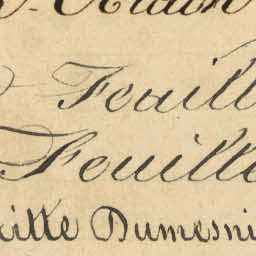 Feuill
Feuille
uille Dumesni